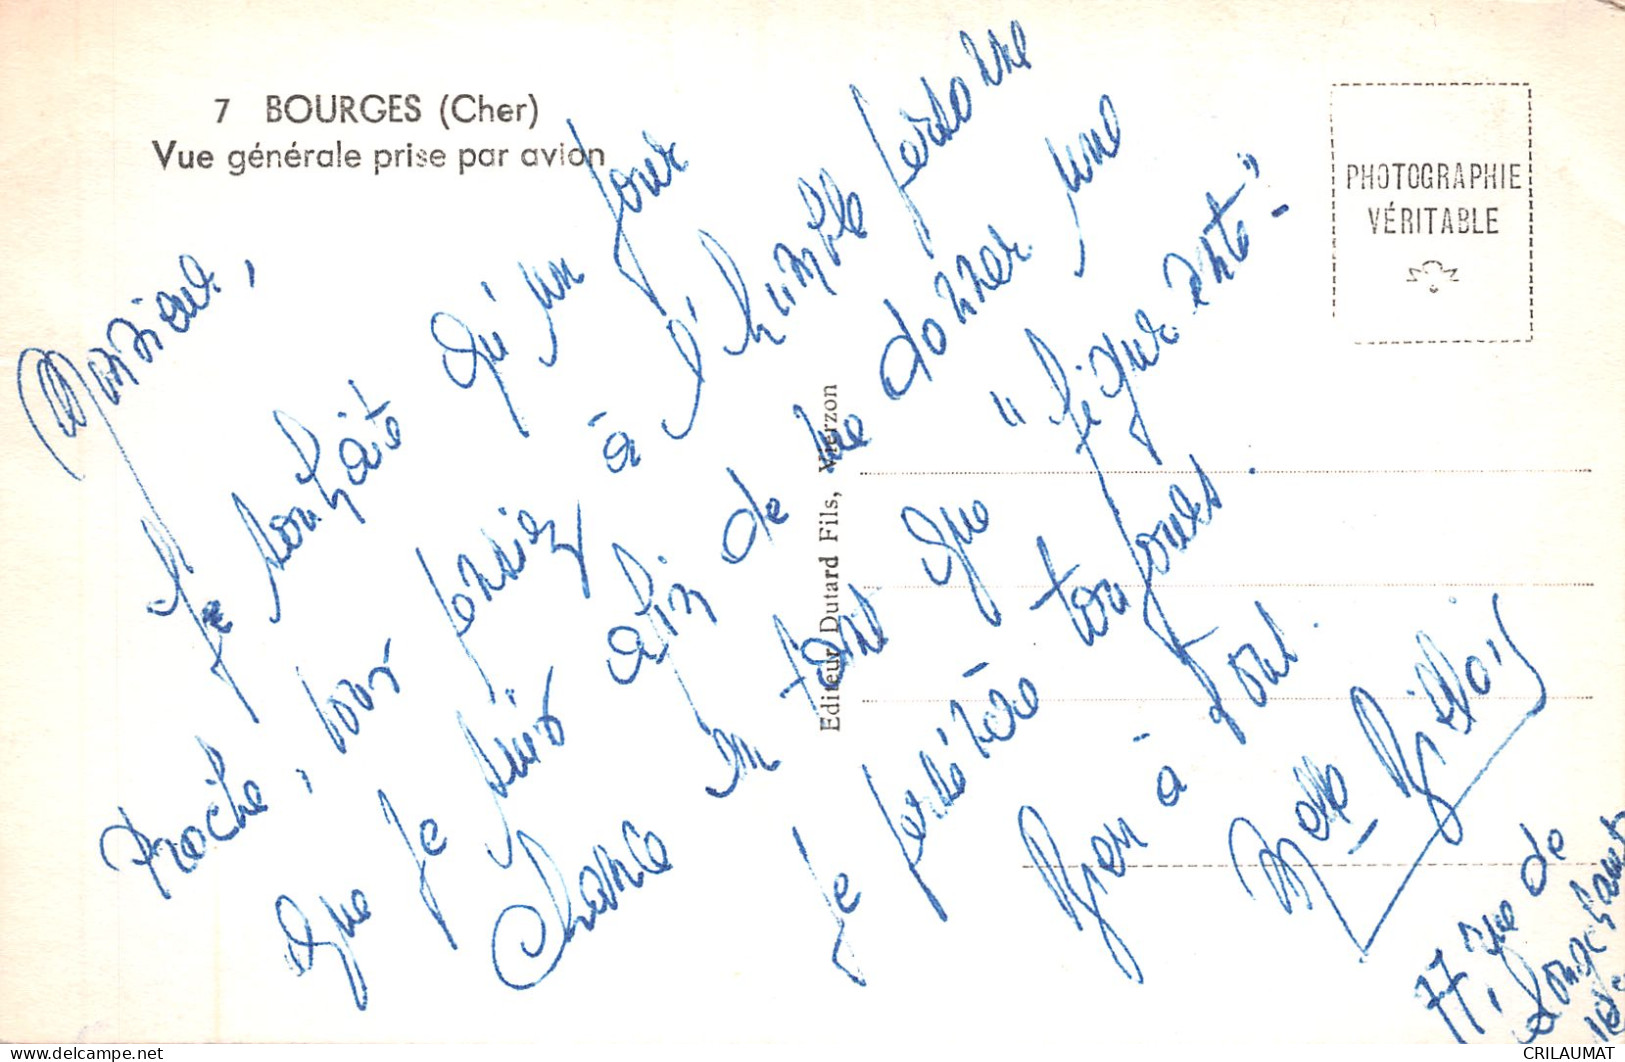 7 BOURGES (Cher)
Vue générale prise par avion
PHOTOGRAPHIE
VÉRITABLE
Editeur Dutard Fils, Vierzon
Monsieur,
Je souhaite qu'un jour
proche, vous pensiez à l'humble personne
que je suis afin de me donner une
chance en tant que "figurante" -
je persévère toujours.
Bien à vous.
Melle
77, rue de
CRILAUMAT